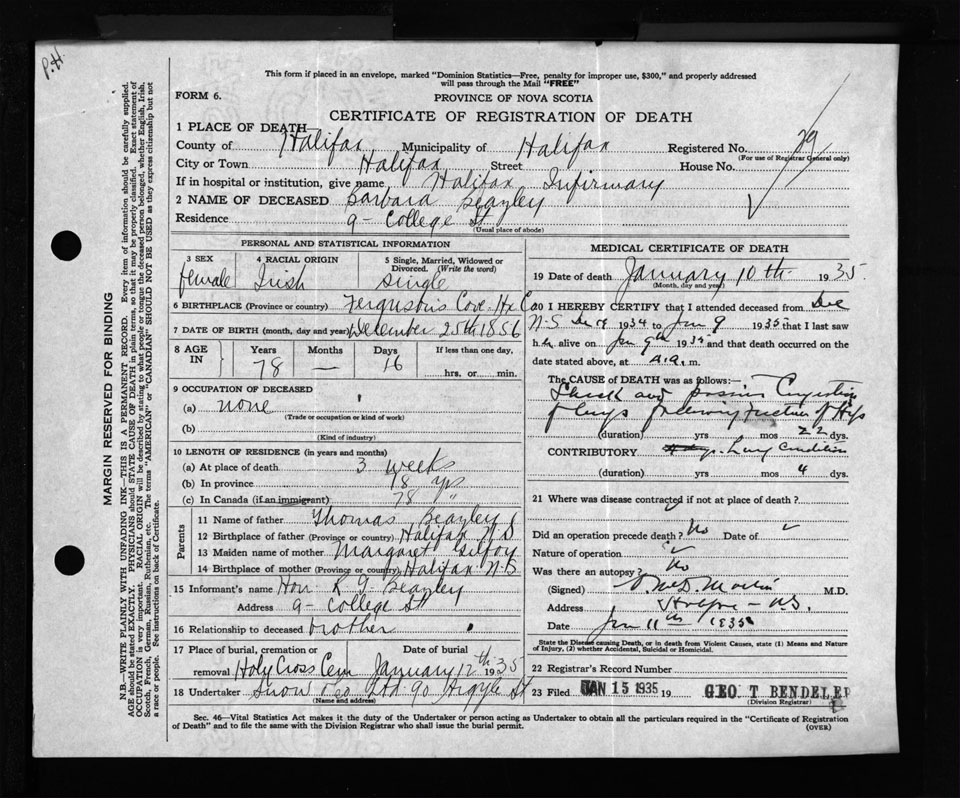 P.H.
This form if placed in an envelope, marked "Dominion Statistics—Free, penalty for improper use, $300," and properly addressed
will pass through the Mail "FREE"
FORM 6.
PROVINCE OF NOVA SCOTIA
CERTIFICATE OF REGISTRATION OF DEATH
1 PLACE OF DEATH
County of Halifax Municipality of Halifax Registered No. 29
(For use of Registrar General only)
City or Town Halifax Street House No.
If in hospital or institution, give name Halifax Infirmary
2 NAME OF DECEASED Barbara Beazley
Residence 9- College St
(Usual place of abode)
MARGIN RESERVED FOR BINDING
N.B.—WRITE PLAINLY WITH UNFADING INK—THIS IS A PERMANENT RECORD. Every item of information should be carefully supplied.
AGE should be stated EXACTLY. PHYSICIANS should STATE CAUSE OF DEATH in plain terms, so that it may be properly classified. Exact statement of
OCCUPATION is very important. RACIAL ORIGIN will be described by stating to what people or tongue the deceased person belonged, whether English, Irish,
Scotch, French, German, Russian, Ruthenian, etc. The terms "AMERICAN" or "CANADIAN" SHOULD NOT BE USED as they express citizenship but not
a race or people. See instructions on back of Certificate.
PERSONAL AND STATISTICAL INFORMATION
3 SEX
female
4 RACIAL ORIGIN
Irish
5 Single, Married, Widowed or
Divorced. (Write the word)
single
6 BIRTHPLACE (Province or country) Ferguson's Cove Hx Co
7 DATE OF BIRTH (month, day and year) December 25th 1856
8 AGE
IN
Years Months Days If less than one day,
78 — 16 hrs. or min.
9 OCCUPATION OF DECEASED
(a) none
(Trade or occupation or kind of work)
(b)
(Kind of industry)
10 LENGTH OF RESIDENCE (in years and months)
(a) At place of death 3 weeks
(b) In province 78 yrs
(c) In Canada (if an immigrant) 78 "
Parents
11 Name of father Thomas Beazley
12 Birthplace of father (Province or country) Halifax N.S
13 Maiden name of mother Margaret Gilfoy
14 Birthplace of mother (Province or country) Halifax N.S
15 Informant's name Hon R G Beazley
Address 9- College St
16 Relationship to deceased brother
17 Place of burial, cremation or
removal Holy Cross Cem
Date of burial
January 12th 1935
18 Undertaker Snow & Co Ltd 90 Argyle St
(Name and address)
MEDICAL CERTIFICATE OF DEATH
19 Date of death January 10th 1935.
(Month, day and year)
20 I HEREBY CERTIFY that I attended deceased from
1934 to Jan 9 1935 that I last saw
h alive on Jan 9th 1935 and that death occurred on the
date stated above, at a.m.
The CAUSE of DEATH was as follows:—
Shock and passive Congestion
of lungs following fracture of Hip
(duration) yrs mos 22 dys.
CONTRIBUTORY Lung Condition
(duration) yrs mos 4 dys.
21 Where was disease contracted if not at place of death?
Did an operation precede death? No Date of
Nature of operation
Was there an autopsy? No
(Signed) M.D.
Address Halifax N.S.
Date Jan 11th 1935
State the Disease causing Death, or in death from Violent Causes, state (1) Means and Nature
of Injury, (2) whether Accidental, Suicidal or Homicidal.
22 Registrar's Record Number
23 Filed JAN 15 1935 19 GEO T BENDELER
(Division Registrar)
Sec. 46—Vital Statistics Act makes it the duty of the Undertaker or person acting as Undertaker to obtain all the particulars required in the "Certificate of Registration
of Death" and to file the same with the Division Registrar who shall issue the burial permit.
(OVER)